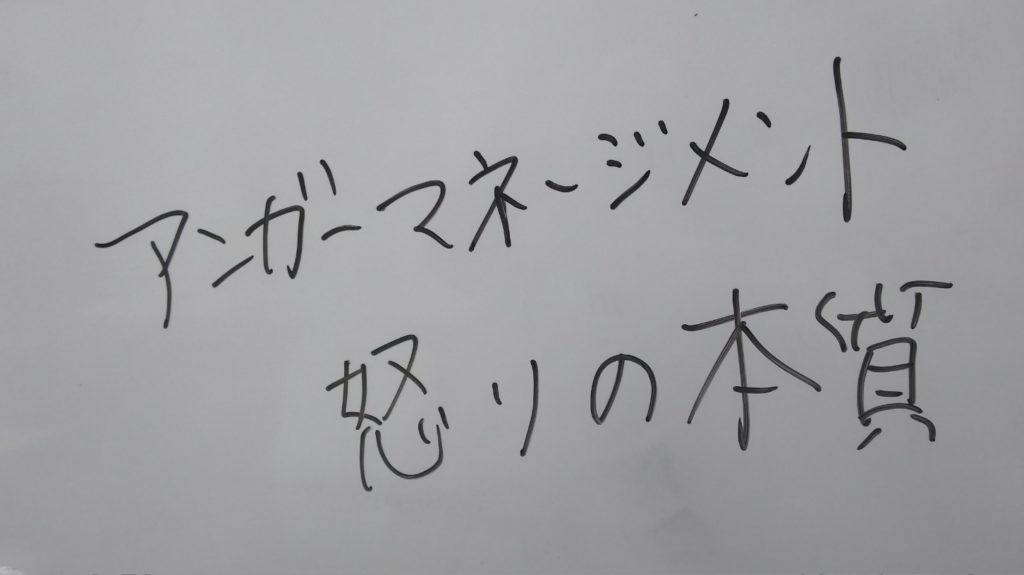 アンガーマネージメント
怒りの本質